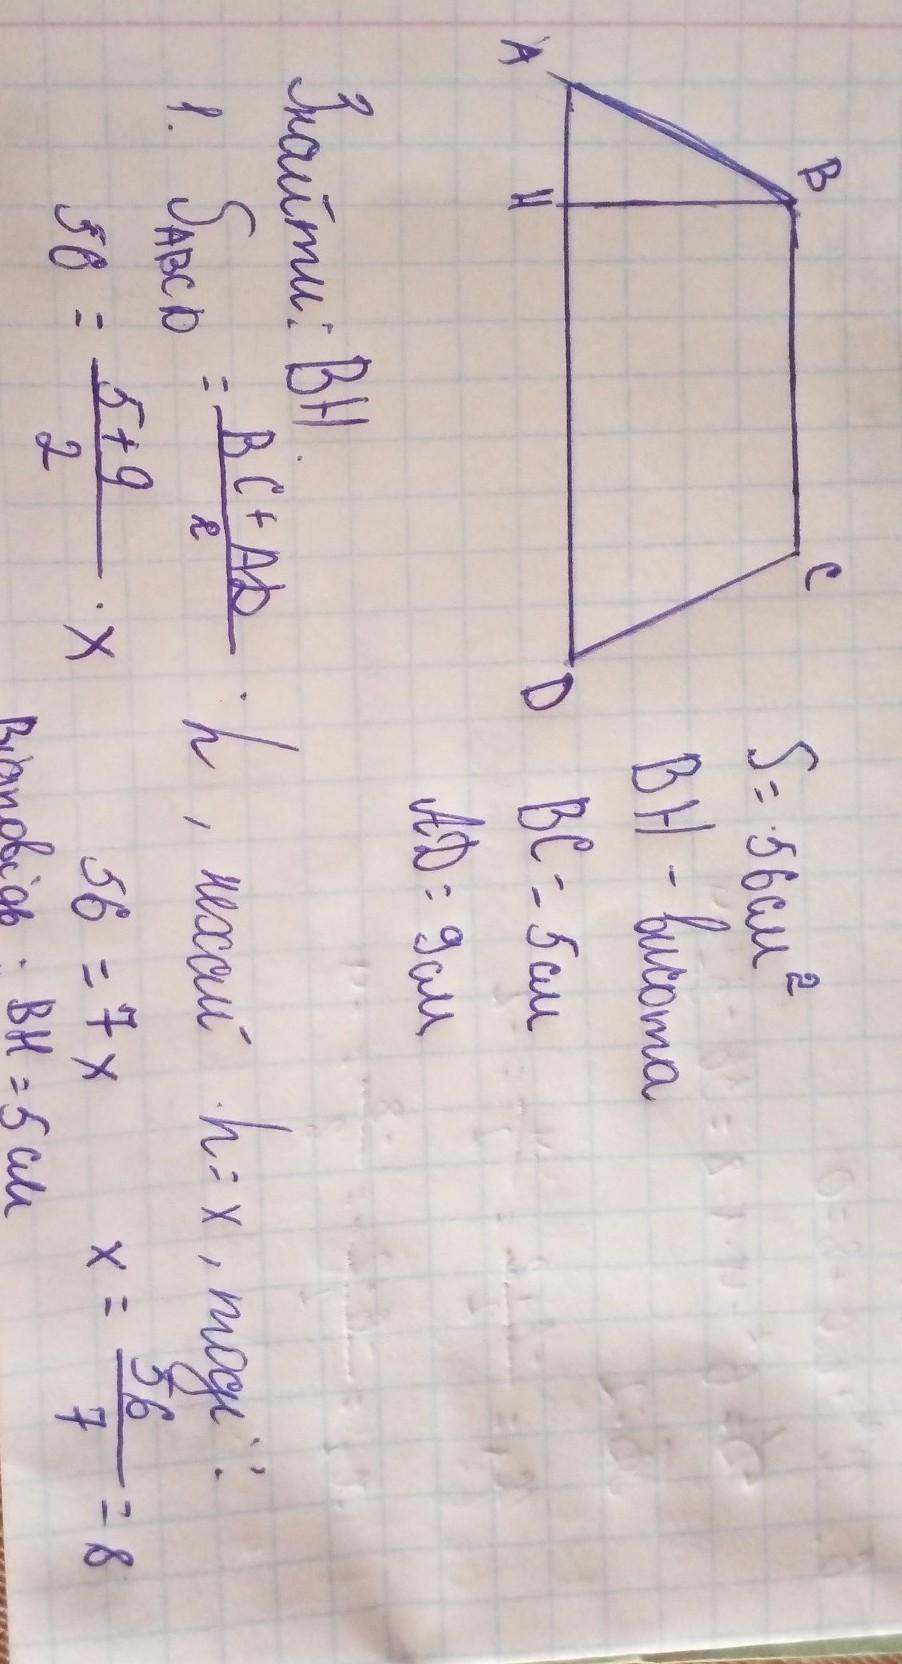 A B C D H
S = 56 см²
BH - висота
BC = 5 см
AD = 9 см
Знайти: BH
1. S_ABCD = (BC + AD)/2 · h, нехай h = x, тоді:
56 = (5+9)/2 · x 56 = 7x x = 56/7 = 8
Відповідь: BH = 5 см